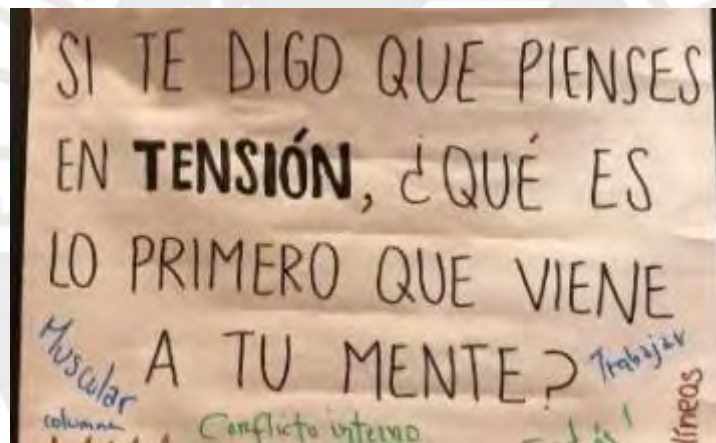 SI TE DIGO QUE PIENSES
EN TENSIÓN, ¿QUÉ ES
LO PRIMERO QUE VIENE
A TU MENTE?
Muscular
Trabajar
columna
Conflicto interno
líneas